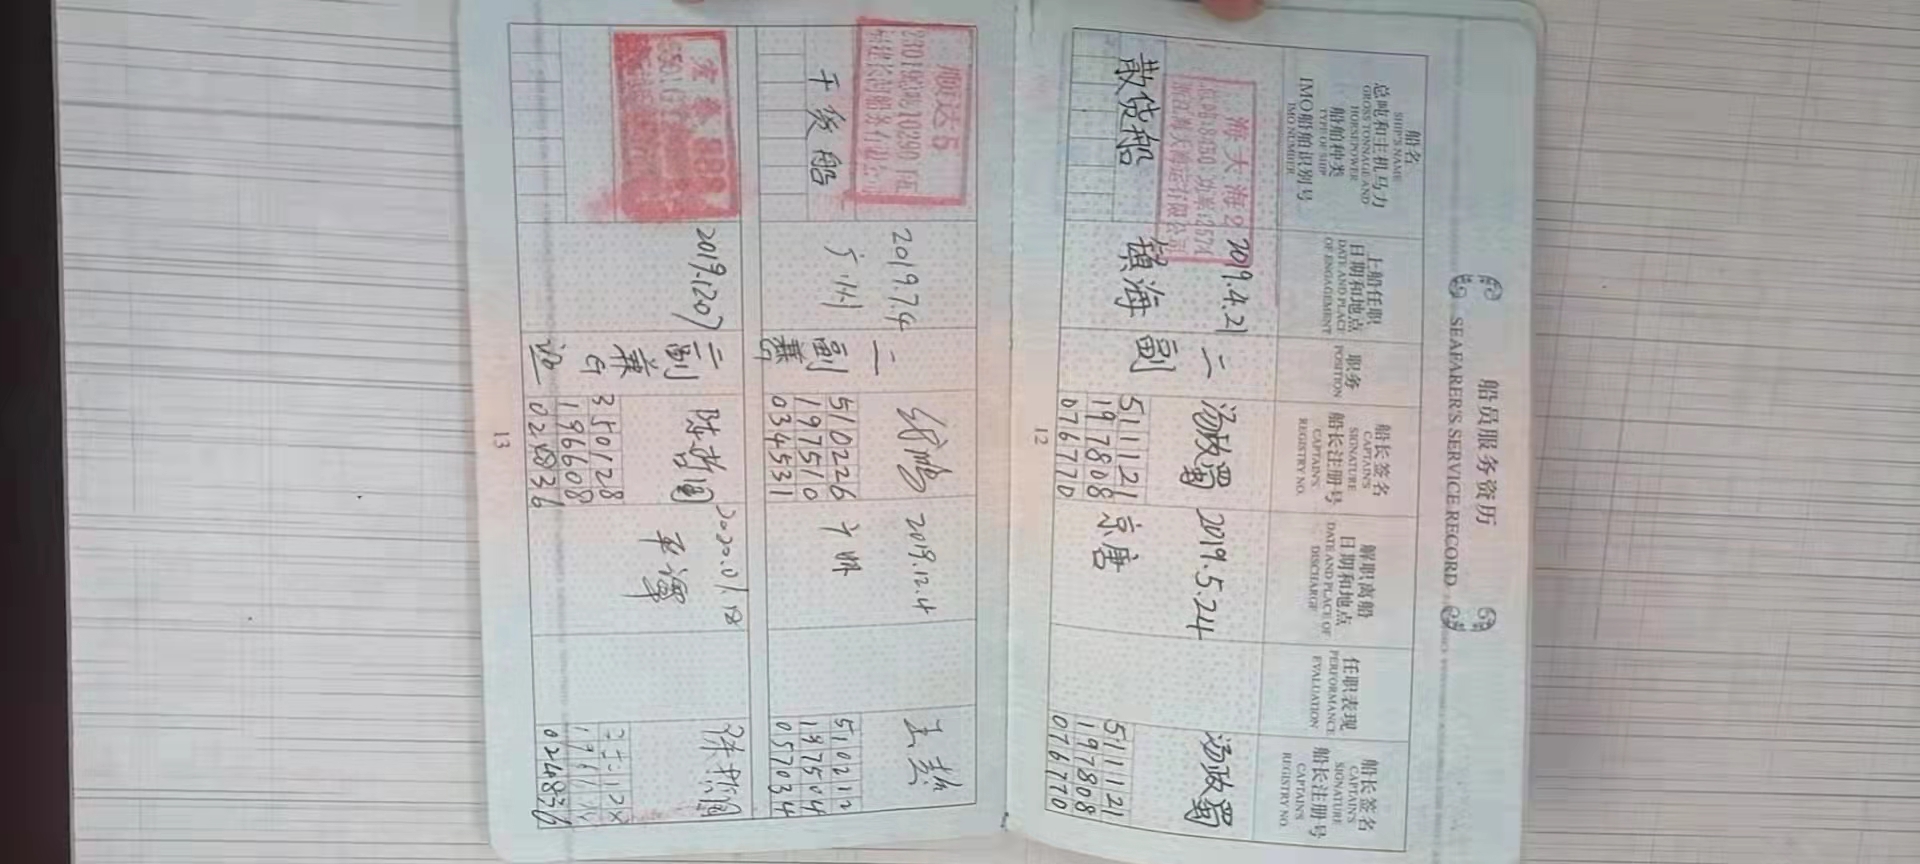 船员服务资历
SEAFARER'S SERVICE RECORD
船名
SHIP'S NAME
总吨和主机马力
GROSS TONNAGE AND
HORSEPOWER
船舶种类
TYPE OF SHIP
IMO船舶识别号
IMO NUMBER
上船任职
日期和地点
DATE AND PLACE
OF ENGAGEMENT
职务
POSITION
船长签名
CAPTAIN'S
SIGNATURE
船长注册号
CAPTAIN'S
REGISTRY NO.
解职离船
日期和地点
DATE AND PLACE OF
DISCHARGE
任职表现
PERFORMANCE
EVALUATION
船长签名
CAPTAIN'S
SIGNATURE
船长注册号
CAPTAIN'S
REGISTRY NO.
海大海2
散货船
2019.4.21
镇海
二
副
汤政蜀
511121
197808
076770
2019.5.24
京唐
汤政蜀
511121
197808
076770
12
顺达6
干货船
2019.7.4
广州
二
副
兼G
510226
197510
034531
2019.12.4
510212
197504
057034
888
2019.1207
二副
兼G
350128
196608
024836
2020.01.18
平潭
024836
13